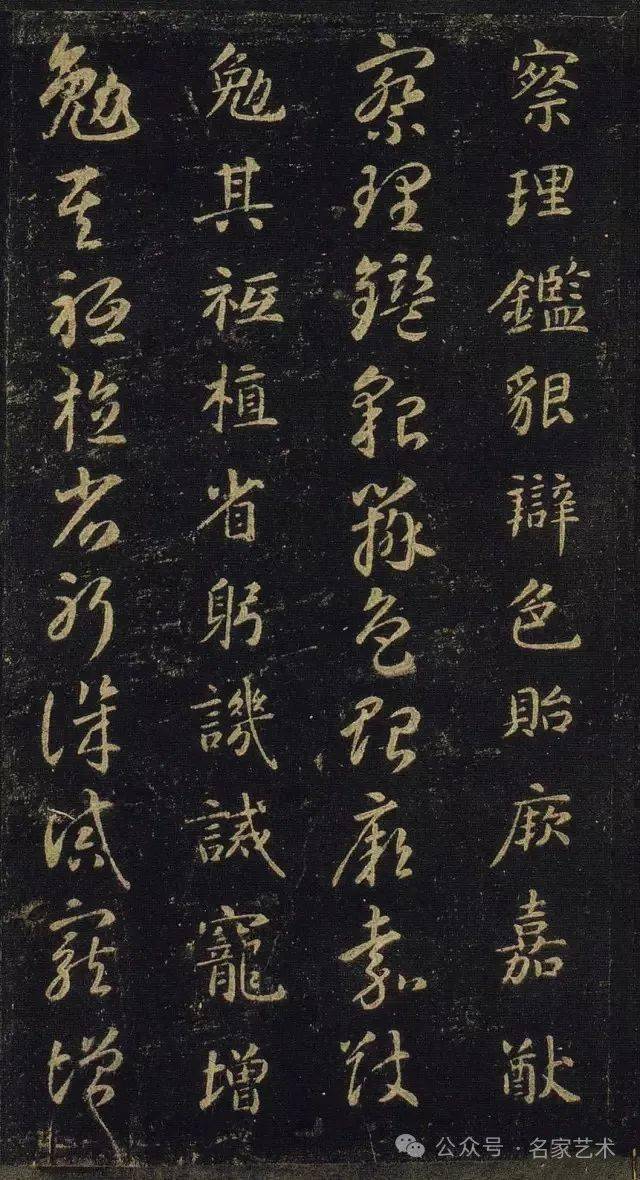 察理鑑貌辯色貽厥嘉猷
察理鑑貌辯色貽厥嘉猷
勉其祗植省躬譏誡寵增
勉其祗植省躬譏誡寵增
公众号·名家艺术